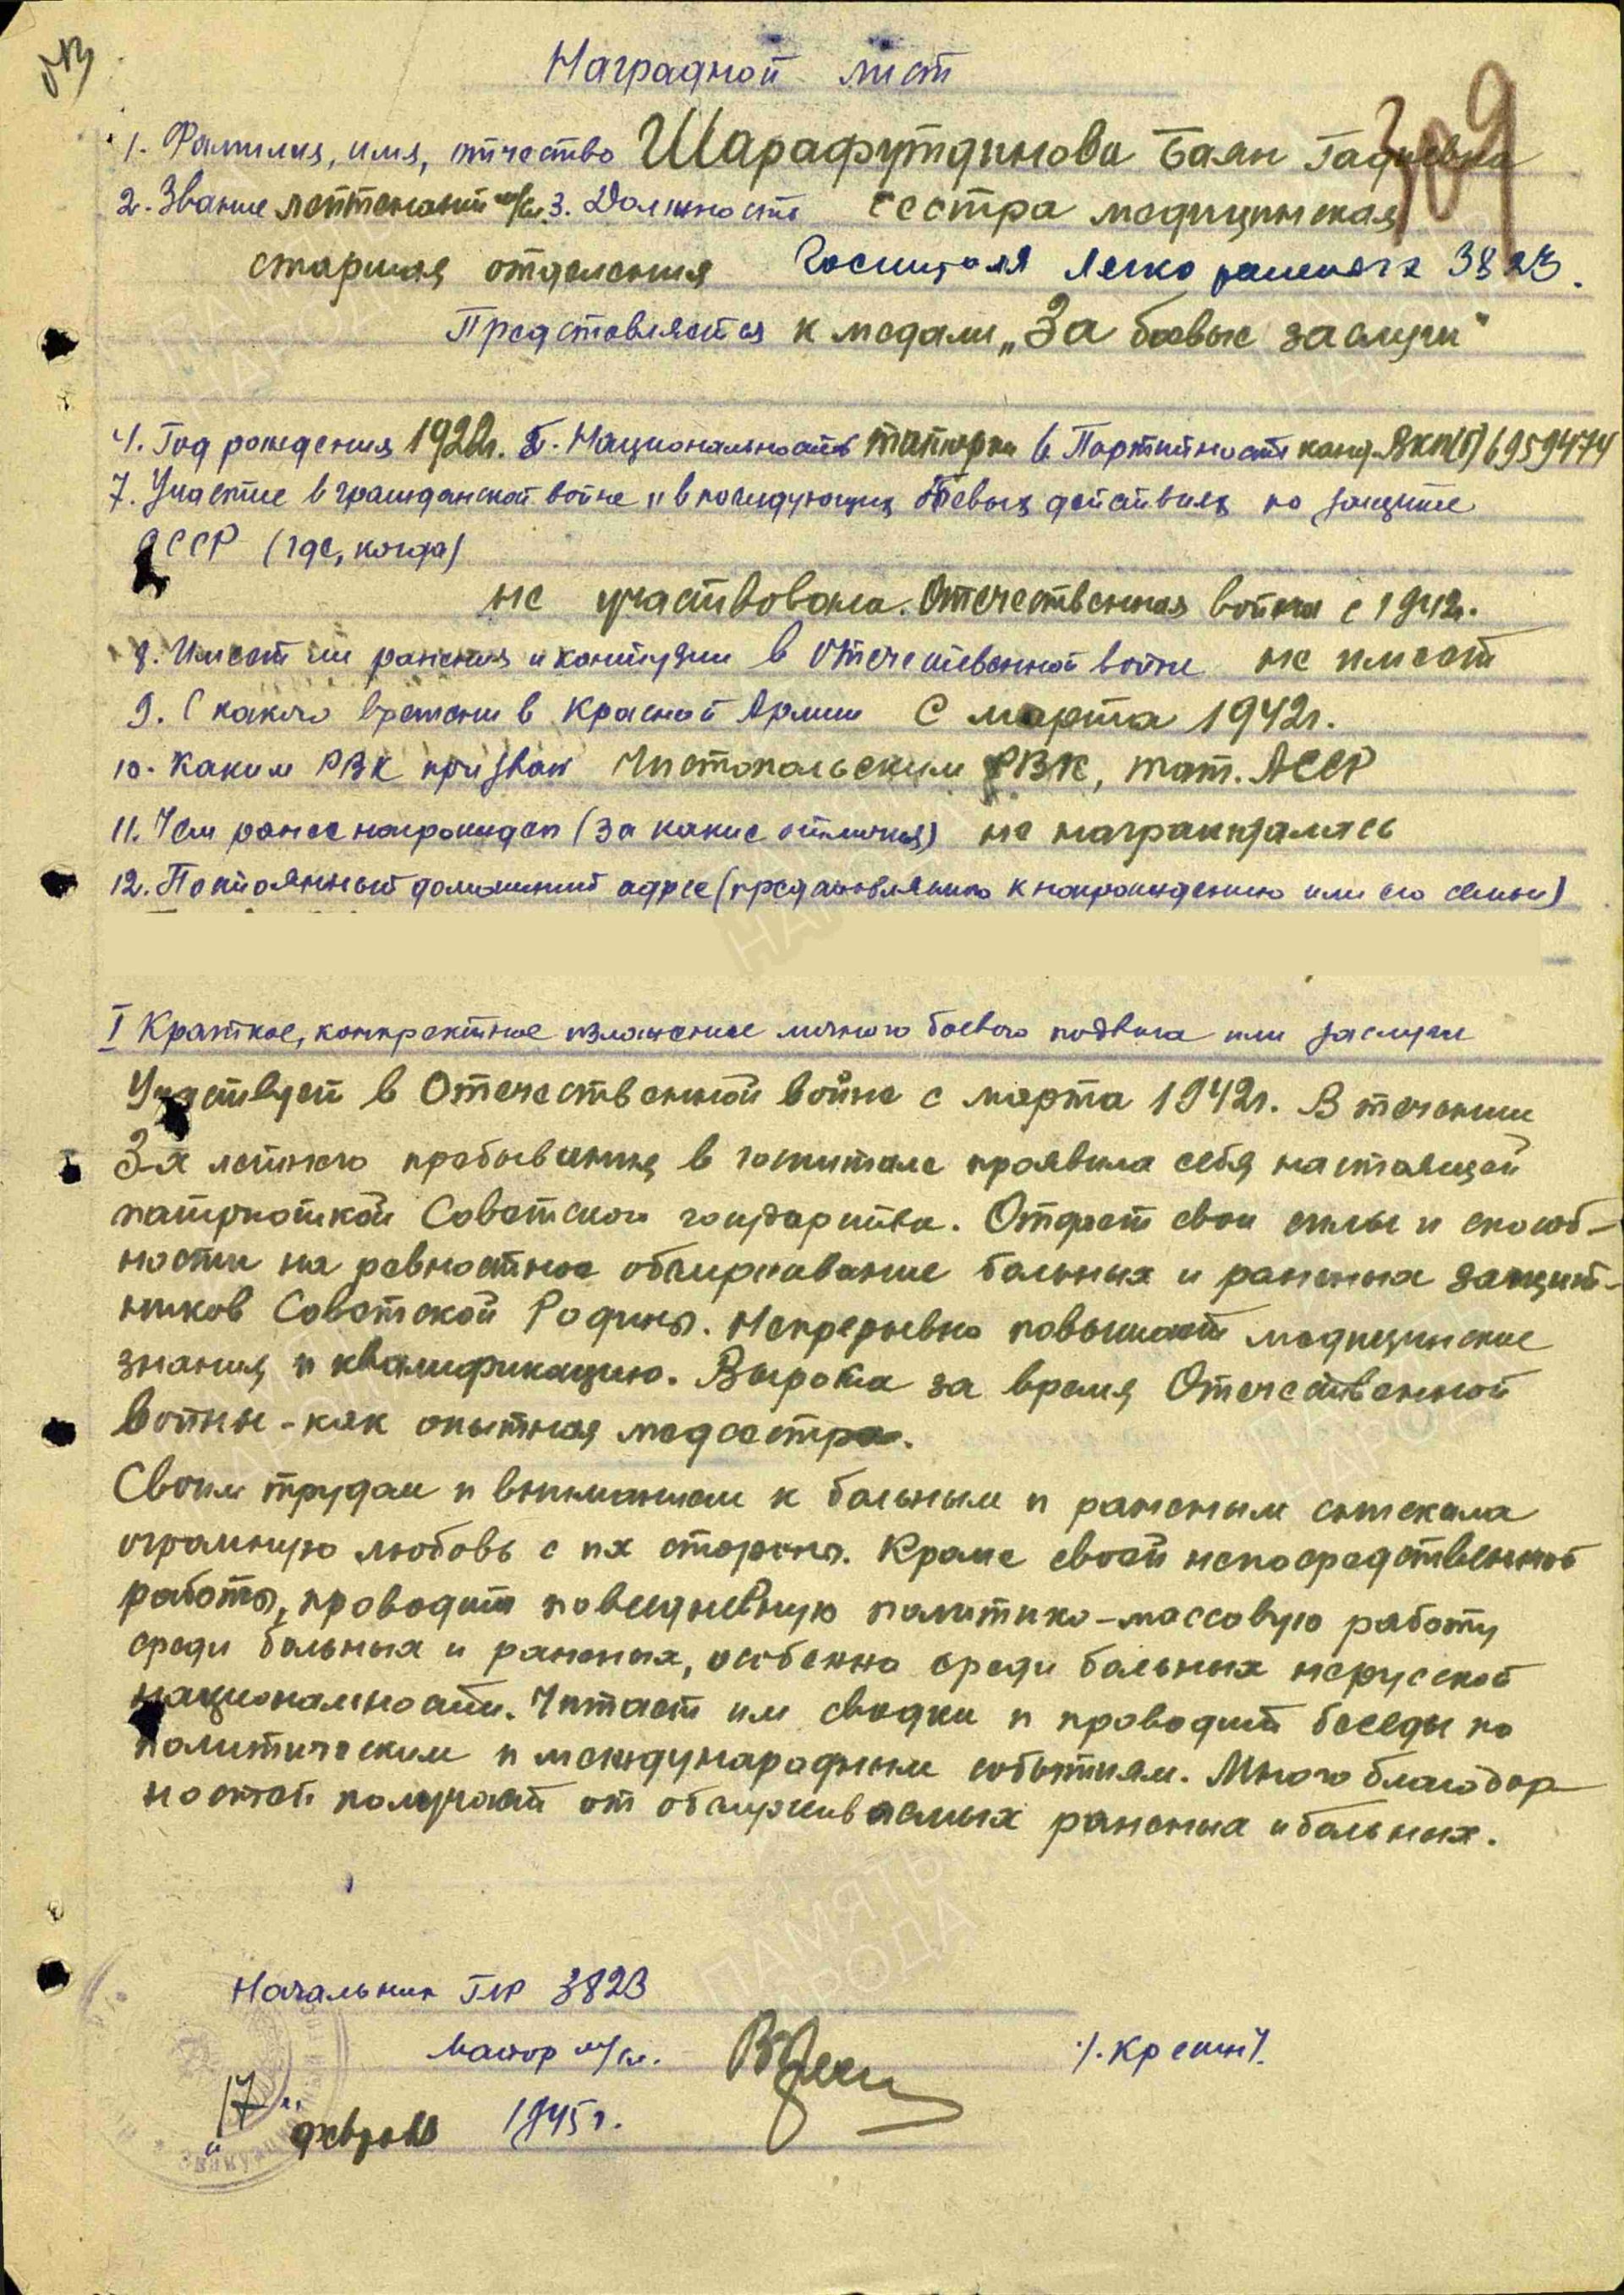 309
Наградной лист
1. Фамилия, имя, отчество Шарафутдинова Баян
2. Звание лейтенант м/сл. 3. Должность сестра медицинская
старшая отделения Госпиталя Легко раненых 3823.
Представляется к медали „За боевые заслуги"
4. Год рождения 1922г. 5. Национальность татарка 6. Партийность канд. ВКП(б) 6959474
7. Участие в гражданской войне и в последующих боевых действиях по защите
СССР (где, когда)
не участвовала. Отечественная война с 1942г.
8. Имеет ли ранения и контузии в Отечественной войне не имеет
9. С какого времени в Красной Армии С марта 1942г.
10. Каким РВК призван Чистопольским РВК, Тат. АССР
11. Чем ранее награжден (за какие отличия) не награждалась
12. Постоянный домашний адрес (представляемого к награждению или его семьи)
I Краткое, конкретное изложение личного боевого подвига или заслуги
Участвует в Отечественной войне с марта 1942г. В течении
3-х летнего пребывания в госпитале проявила себя настоящей
патриоткой Советского государства. Отдает свои силы и способ-
ности на ревностное обслуживание больных и раненых защит-
ников Советской Родины. Непрерывно повышает медицинские
знания и квалификацию. Выросла за время Отечественной
войны - как опытная медсестра.
Своим трудом и вниманием к больным и раненым снискала
огромную любовь с их стороны. Кроме своей непосредственной
работы, проводит повседневную политико-массовую работу
среди больных и раненых, особенно среди больных нерусской
национальности. Читает им сводки и проводит беседы по
политическим и международным событиям. Много благодар
ностей получает от обслуживаемых раненых и больных.
Начальник ГЛР 3823
Майор м/сл. /. Кремин/.
"17" февраля 1945г.